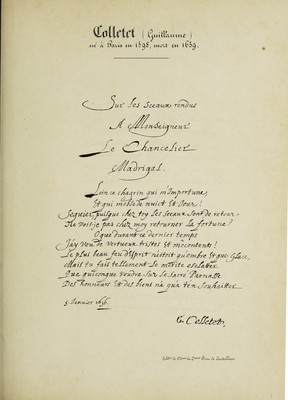 Colletet (Guillaume)
né à Paris en 1598, mort en 1659.
Sur les sceaux rendus
A Monseigneur
Le Chancelier
Madrigal.
Loin ce chagrin qui m'importune,
Et qui me blesse nuict et Jour!
Seguier, puisque chez toy les Sceaux sont de retour
Ils vont pas chez moy retourner la fortune?
O que durant ce dernier temps
J'ay veu de vertueux tristes et mecontents!
Le plus beau feu d'Esprit n'estoit qu'ombre et que Glace,
Mais tu fais tellement Le merite esclatter
Que quiconque voudra sur Le Sacré Parnasse
Des honneurs et des biens n'a qu'à t'en souhaitter
5 Janvier 1656.
G. Colletet.